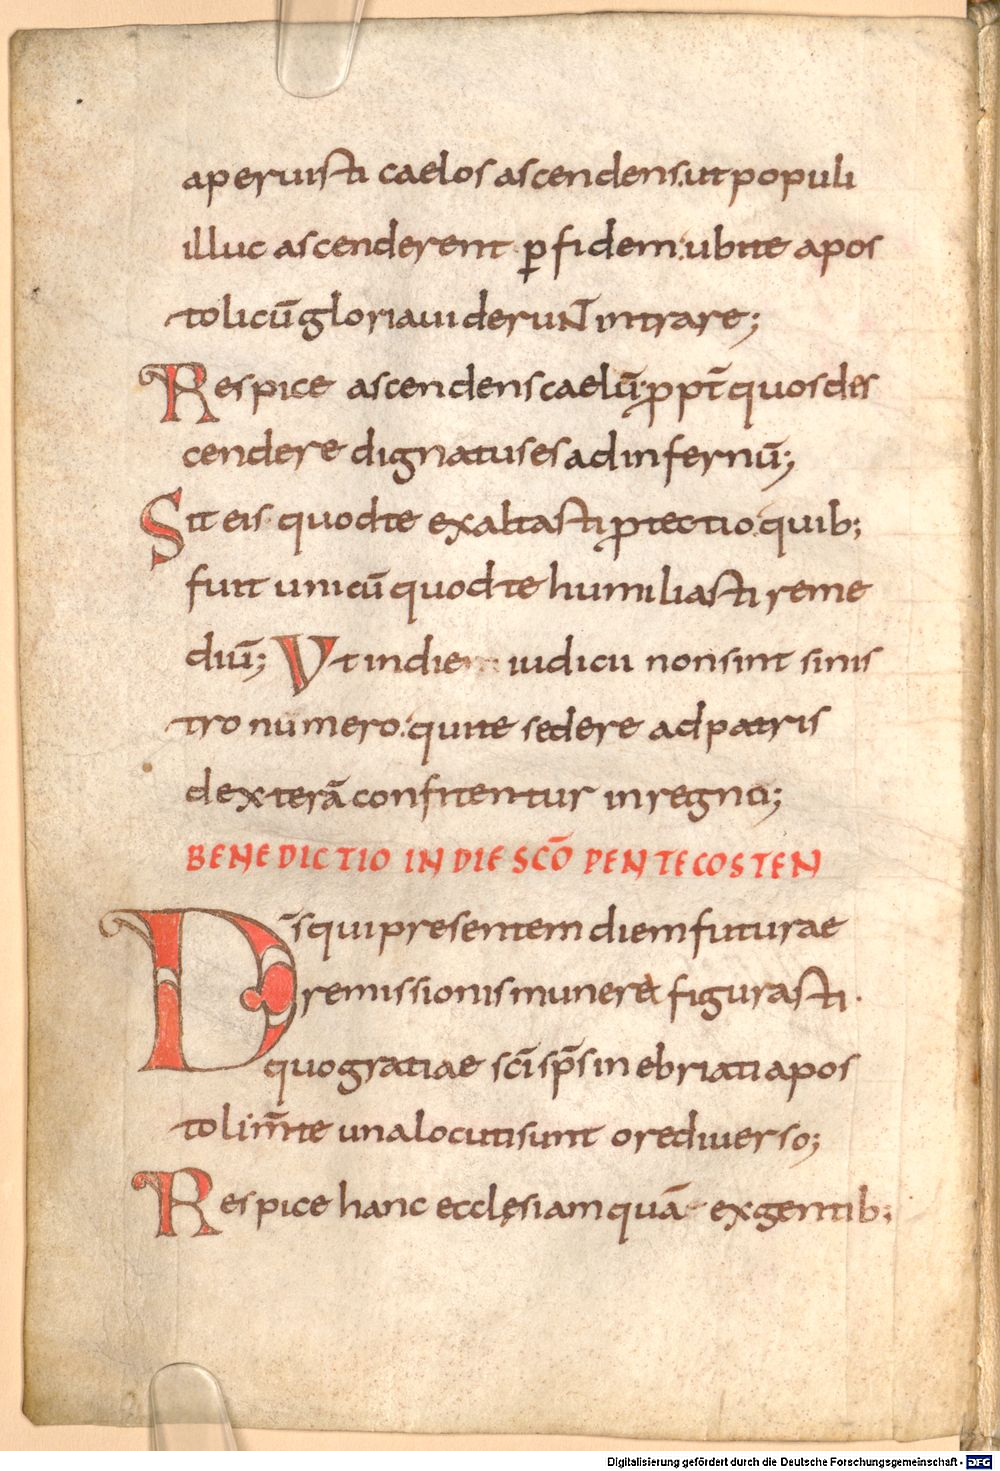 aperuisti caelos ascendens. ut populi
illuc ascenderent p̱ fidem. ubi te apos
tolicū gloria uiderunt̄ intrare;
Respice ascendens caelū. propt̄ quos des
cendere dignatus es ad infernū;
Sit eis. quod te exaltasti protectio. quib;
fuit unicū quod te humiliasti reme
diū; Ut in die iudicii non sint sinis
tro numero. qui te sedere ad patris
dexterā confitentur in regno;
BENEDICTIO IN DIE SCŌ PENTECOSTEN
Ds̄ qui presentem diem futurae
remissionis munere figurasti.
quo gratiae sc̄i sp̄s inebriati apos
toli m̄te una locuti sunt ore diuerso;
Respice hanc ecclesiam quā ex gentib;
Digitalisierung gefördert durch die Deutsche Forschungsgemeinschaft - DFG